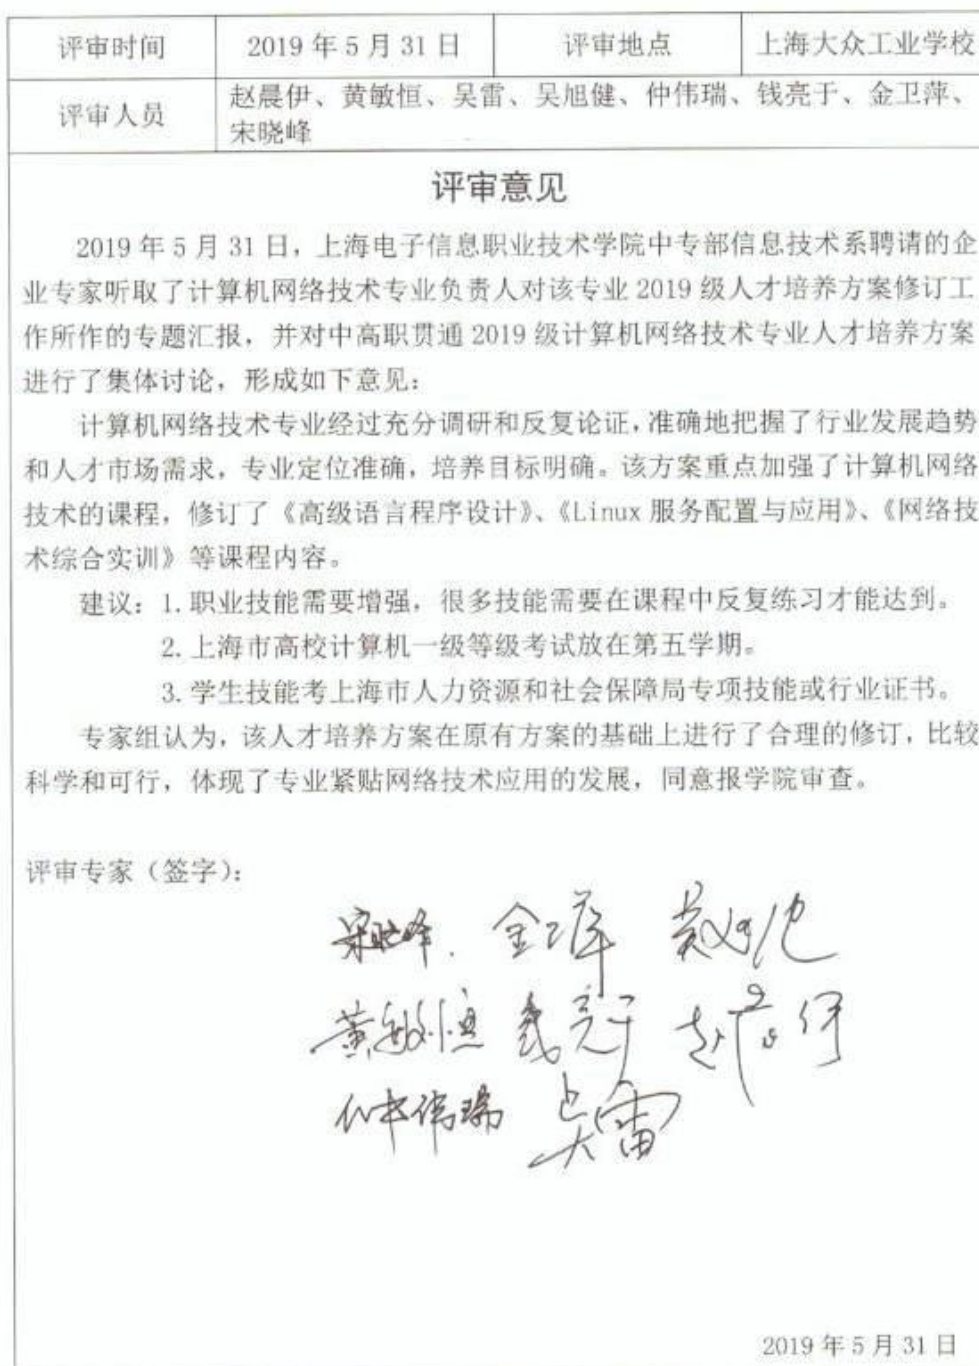 评审时间 2019 年 5 月 31 日 评审地点 上海大众工业学校
评审人员 赵晨伊、黄敏恒、吴雷、吴旭健、仲伟瑞、钱亮于、金卫萍、
宋晓峰
评审意见
2019 年 5 月 31 日，上海电子信息职业技术学院中专部信息技术系聘请的企
业专家听取了计算机网络技术专业负责人对该专业 2019 级人才培养方案修订工
作所作的专题汇报，并对中高职贯通 2019 级计算机网络技术专业人才培养方案
进行了集体讨论，形成如下意见：
计算机网络技术专业经过充分调研和反复论证，准确地把握了行业发展趋势
和人才市场需求，专业定位准确，培养目标明确。该方案重点加强了计算机网络
技术的课程，修订了《高级语言程序设计》、《Linux 服务配置与应用》、《网络技
术综合实训》等课程内容。
建议：1. 职业技能需要增强，很多技能需要在课程中反复练习才能达到。
2. 上海市高校计算机一级等级考试放在第五学期。
3. 学生技能考上海市人力资源和社会保障局专项技能或行业证书。
专家组认为，该人才培养方案在原有方案的基础上进行了合理的修订，比较
科学和可行，体现了专业紧贴网络技术应用的发展，同意报学院审查。
评审专家（签字）：
宋晓峰 金卫萍
黄敏恒 钱亮于 赵晨伊
仲伟瑞 吴雷
2019 年 5 月 31 日